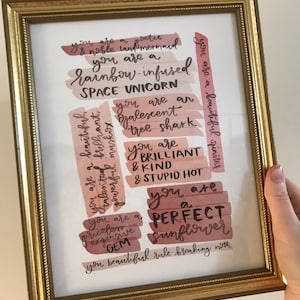 you are a poetic
& noble land mermaid
you are a
rainbow-infused
SPACE UNICORN
you are a beautiful genius
you are an
opalescent
tree shark
you are a beautiful
talented brilliant
powerful muskox
you are
BRILLIANT
& KIND
& STUPID HOT
you are
a PERFECT
sunflower
you are a
priceless
expensive
GEM
you beautiful rule-breaking moth